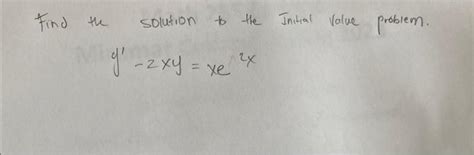 Find the solution to the Initial Value problem.
y' - 2xy = xe^2x